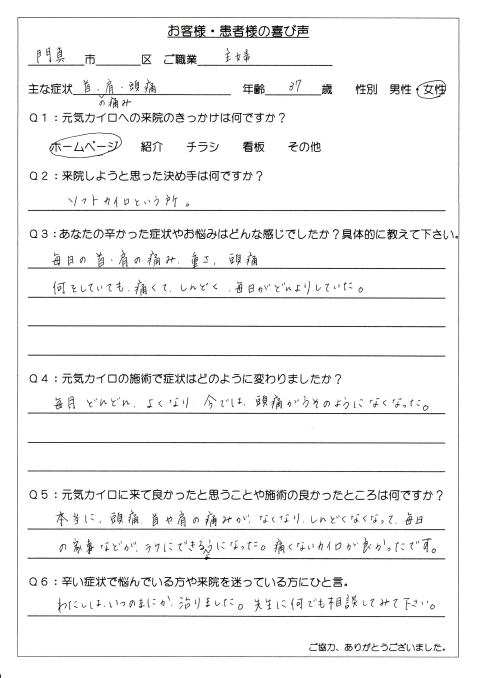 お客様・患者様の喜び声
門真 市 区 ご職業 主婦
主な症状 首・肩・頭痛 年齢 37 歳 性別 男性・女性
の痛み
Q1：元気カイロへの来院のきっかけは何ですか？
ホームページ 紹介 チラシ 看板 その他
Q2：来院しようと思った決め手は何ですか？
ソフトカイロという所。
Q3：あなたの辛かった症状やお悩みはどんな感じでしたか？具体的に教えて下さい。
毎日の首・肩の痛み、重さ、頭痛
何をしていても、痛くて、しんどく、毎日がどんよりしていた。
Q4：元気カイロの施術で症状はどのように変わりましたか？
毎月 どんどん、よくなり 今では、頭痛がうそのようになくなった。
Q5：元気カイロに来て良かったと思うことや施術の良かったところは何ですか？
本当に、頭痛、首や肩の痛みが、なくなり、しんどくなくなって、毎日
の家事などが、ラクにできるようになった。痛くないカイロが良かったです。
Q6：辛い症状で悩んでいる方や来院を迷っている方にひと言。
わたしは、いつのまにか、治りました。先生に何でも相談してみて下さい。
ご協力、ありがとうございました。